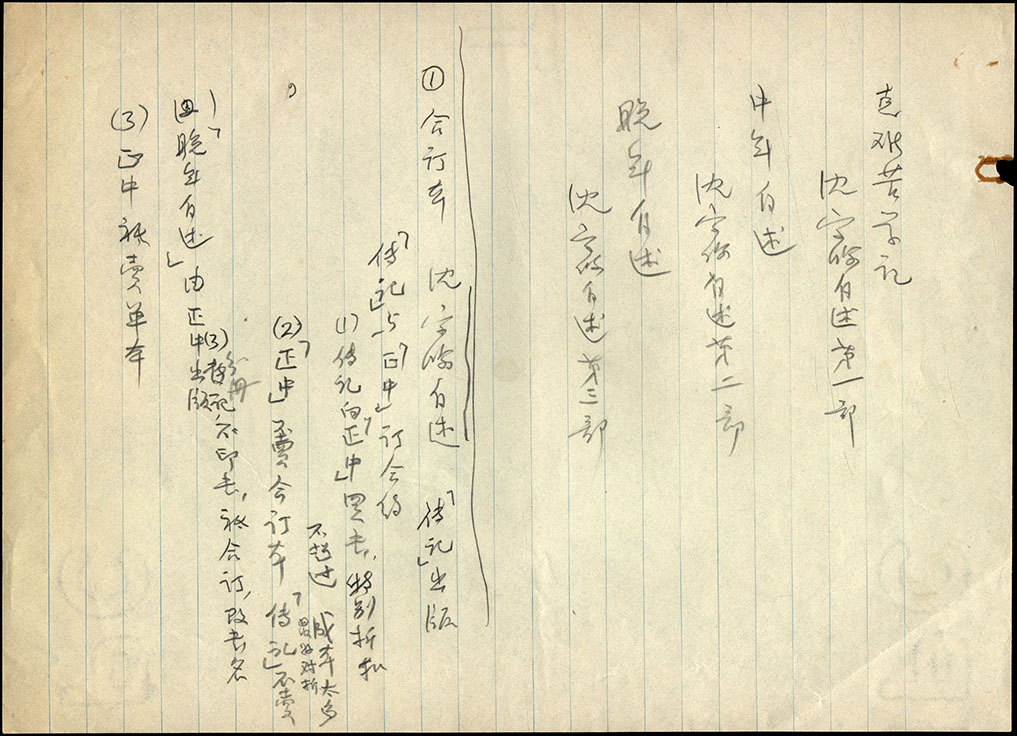 克难苦学记
沈宗瀚自述第一部
中年自述
沈宗瀚自述第二部
晚年自述
沈宗瀚自述第三部
① 合订本 沈宗瀚自述 「传记」出版
「传记」与「正中」订合约
(1) 传记向「正中」买书，特别折扣
不超过成本太多
最好对折
(2)「正中」不卖合订本「传记」不卖
分册
(3) 传记不印书，祇合订，改书名
「晚年自述」由正中出版
(3) 正中祇卖单本